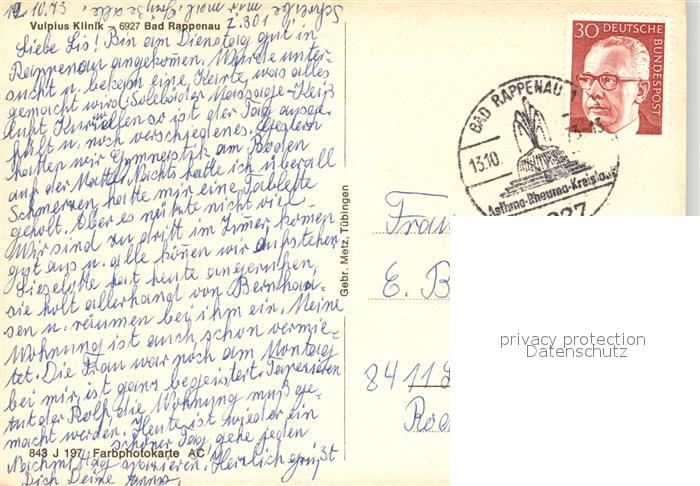 12.10.73
Z. 301
Vulpius Klinik – 6927 Bad Rappenau
Liebe Lis! Bin am Dienstag gut in
Rappenau angekommen. Wurde unter-
sucht u. bekam eine Karte, was alles
gemacht wird. Solebäder Massage - Heiß
luft Kur so ist der Tag ausge-
füllt u. noch verschiedenes. Gestern
hatten wir Gymnastik am Boden
auf der Matte. Nachts hatte ich überall
Schmerzen hatte mir eine Tablette
geholt. Aber es nützte nicht viel.
Wir sind zu dritt im Zimmer komen
gut aus u. alle können wir aufstehen
Lieselotte hat heute angerufen,
sie holt allerhand von Bernhau-
sen u. räumen bei ihm ein. Meine
Wohnung ist auch schon vermie-
tet. Die Frau war noch am Montag
bei mir, ist ganz begeistert. Tapezieren
tut der Rolf, die Wohnung muß ge-
macht werden. Heute ist wieder ein
schöner Tag, gehe jeden
Nachmittag spazieren. Herzlich grüßt
Dich Deine
843 J 197 Farbphotokarte AC
Gebr. Metz, Tübingen
30 DEUTSCHE
BUNDESPOST
BAD RAPPENAU
13.10.
Asthma-Rheuma-Kreislau
927
Frau
E. B
8411
privacy protection
Datenschutz